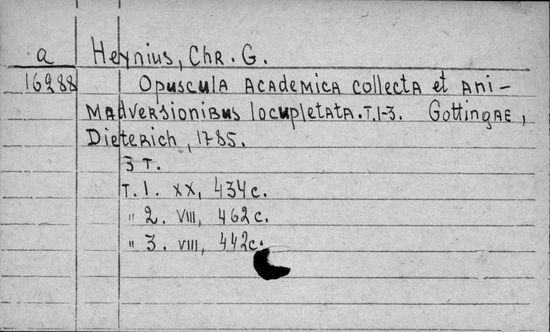 a Heynius, Chr. G.
16288 Opuscula academica collecta et ani-
madversionibus locupletata. T.1-3. Gottingae,
Dieterich, 1785.
3 т.
Т. 1. XX, 434 с.
" 2. VIII, 462 с.
" 3. VIII, 442 с.